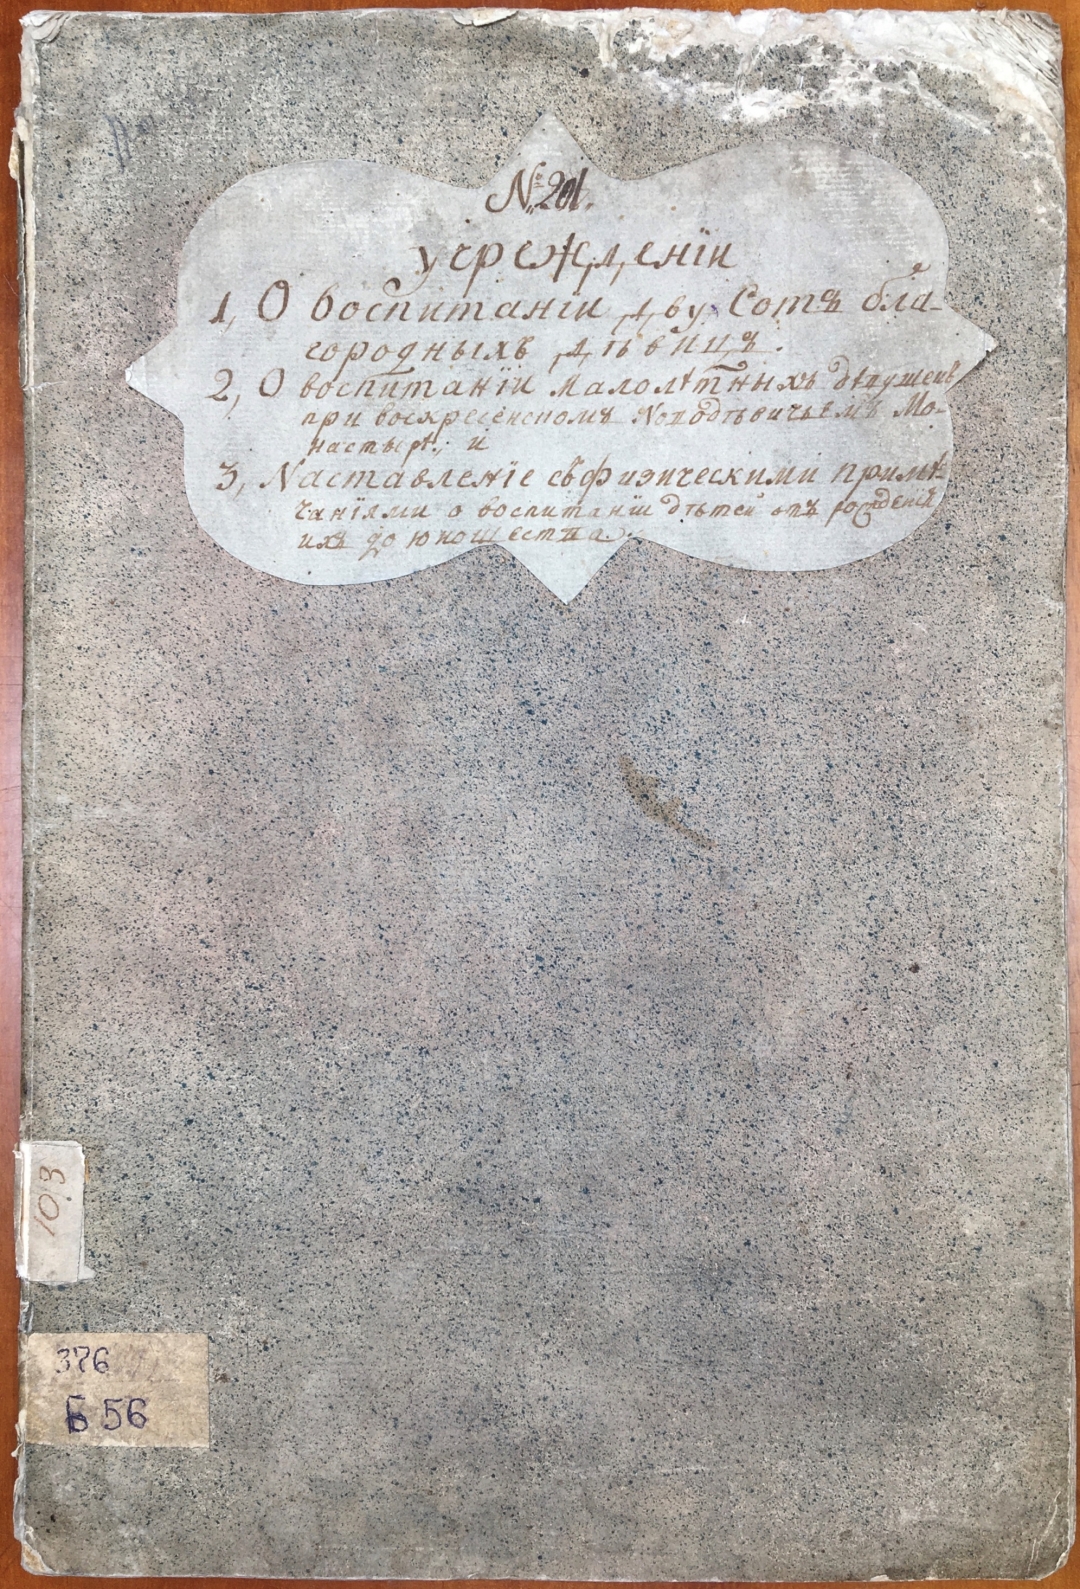 № 201.
учрежденіи
1, О воспитаніи двухъ Сотъ бла-
городныхъ дѣвицъ.
2, О воспитаніи малолѣтныхъ дѣвушекъ
при воскресенскомъ Новодѣвичьемъ Мо-
настырѣ, и
3, Наставленіе съ физическими примѣ-
чаніями о воспитаніи дѣтей отъ рожденія
ихъ до юношества.
103
376
Б 56